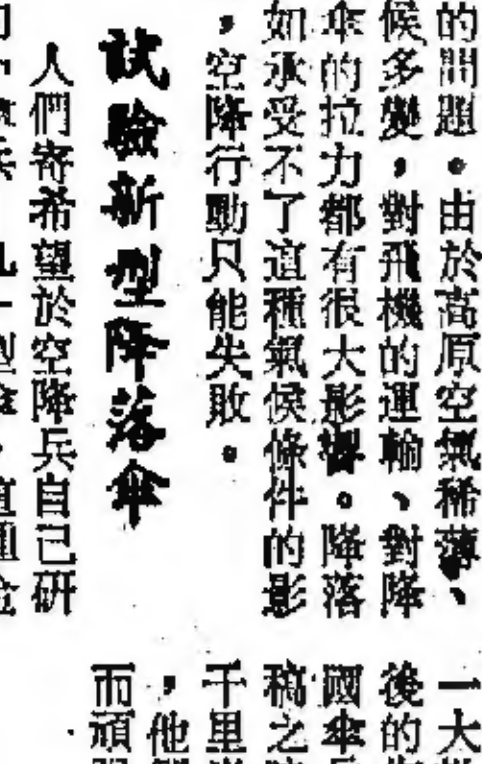 的問題。由於高原空氣稀薄、
候多變，對飛機的運輸、對降
傘的拉力都有很大影響。降落
如承受不了這種氣候條件的影
，空降行動只能失敗。
試驗新型降落傘
人們寄希望於空降兵自己研
一大
後的
國傘
稿之
千里
，他
而頑